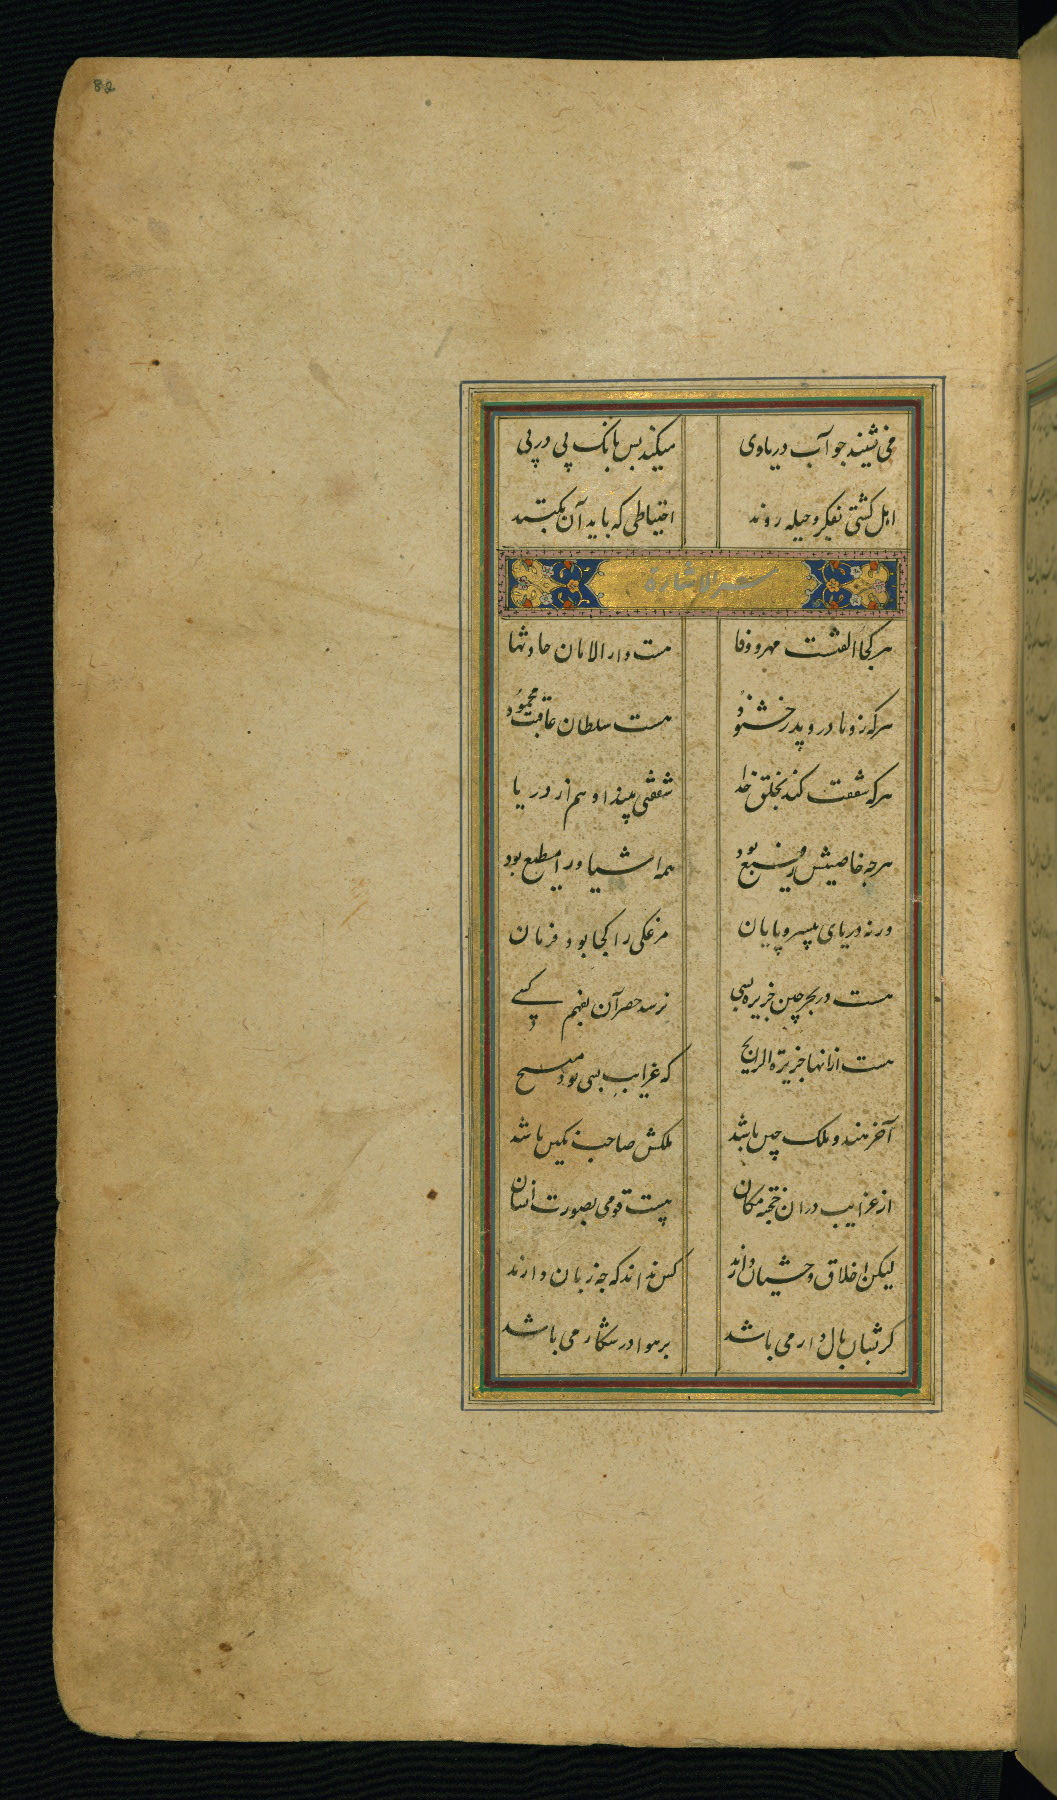 82
می نشیند جو آب دریا وی میکند بس بانک پی در پی
اهل کشتی بفکر و حیله روند احتیاطی که باید آن بکنند
سر الاشارة
هر کجا الفتست مهر و وفا هست دار الامان حادثها
هر که زو مادر و پدر خشنود هست سلطان عاقبت محمود
هر که شفقت کند بخلق خدا شفقتی بیند او هم از دریا
هر چه خاصیتش بود همه اشیا ورا مطیع بود
ورنه دریای بی سر و پایان مرغکی را کجا بود فرمان
هست در بحر چین جزیره بسی نرسد حصر آن بفهم کسی
هست ازانها جزیرة الریح که غرایب بسی بود
آخر هند و ملک چین باشد ملکش صاحب نکین باشد
از غرایب دران مکان هست قومی بصورت انسان
لیکن اخلاق وحشیان دارند کس نداند که چه زبان دارند
کر بال دار می باشد بر هوا در شکار می باشد